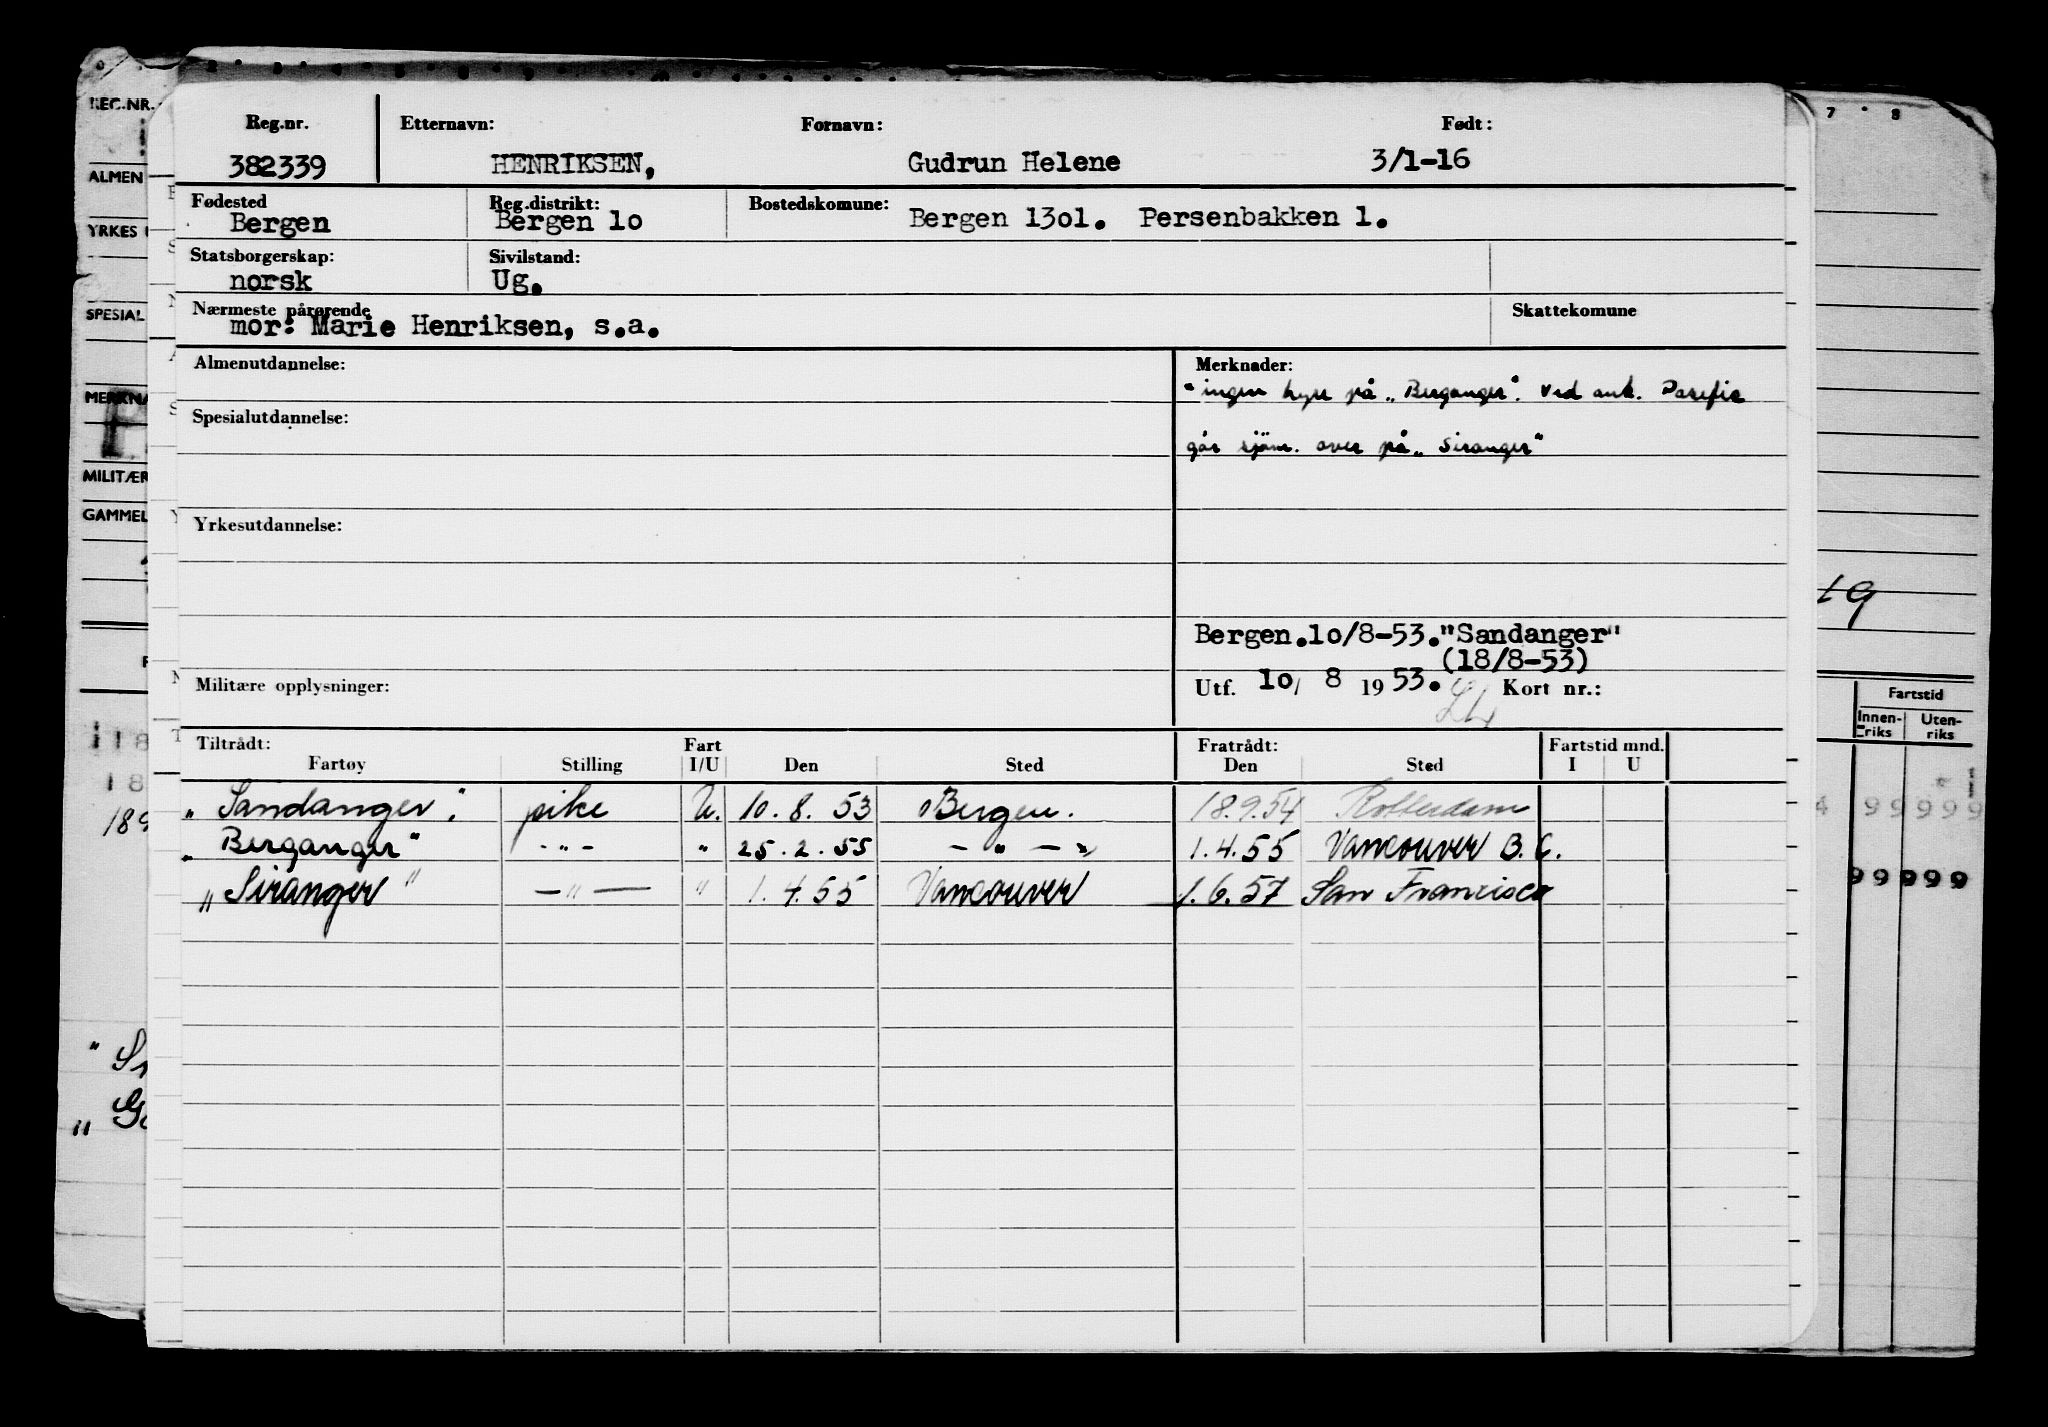 Reg.nr. Etternavn: Fornavn: Født:
382339 HENRIKSEN, Gudrun Helene 3/1-16
Fødested Reg.distrikt: Bostedskomune:
Bergen Bergen 1o Bergen 13o1. Persenbakken 1.
Statsborgerskap: Sivilstand:
norsk Ug.
Nærmeste pårørende Skattekomune
mor: Marie Henriksen, s.a.
Almenutdannelse: Merknader:
"ingen hyre på „Berganger". Ved ank. Pasefic
Spesialutdannelse:
går sjøm. over på „Siranger"
Yrkesutdannelse:
Bergen.1o/8-53."Sandanger"
(18/8-53)
Militære opplysninger: Utf. 1o/ 8 1953. Kort nr.:
Tiltrådt: Fart Fratrådt: Fartstid mnd.
Fartøy Stilling I/U Den Sted Den Sted I U
„Sandanger". pike U. 10.8.53 Bergen. 18.9.54 Rotterdam
„Berganger" -"- " 25.2.55 - " - " 1.4.55 Vancouver B.C.
„Siranger" -"- " 1.4.55 Vancouver 1.6.57 San Francisco
REG.NR.
ALMEN
YRKES
SPESIAL
MERKNA
MILITÆR
GAMMEL
7 8
19
Fartstid
Innen- Uten-
riks riks
99 999
99 999